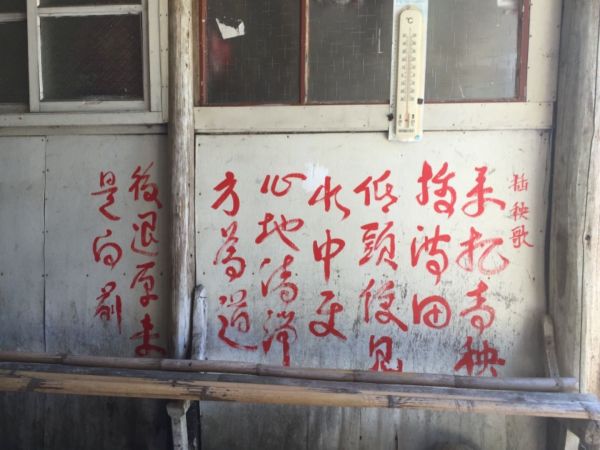 插秧歌
手把青秧
插滿田
低頭便見
水中天
心地清淨
方為道
後退原來
是向前
℃